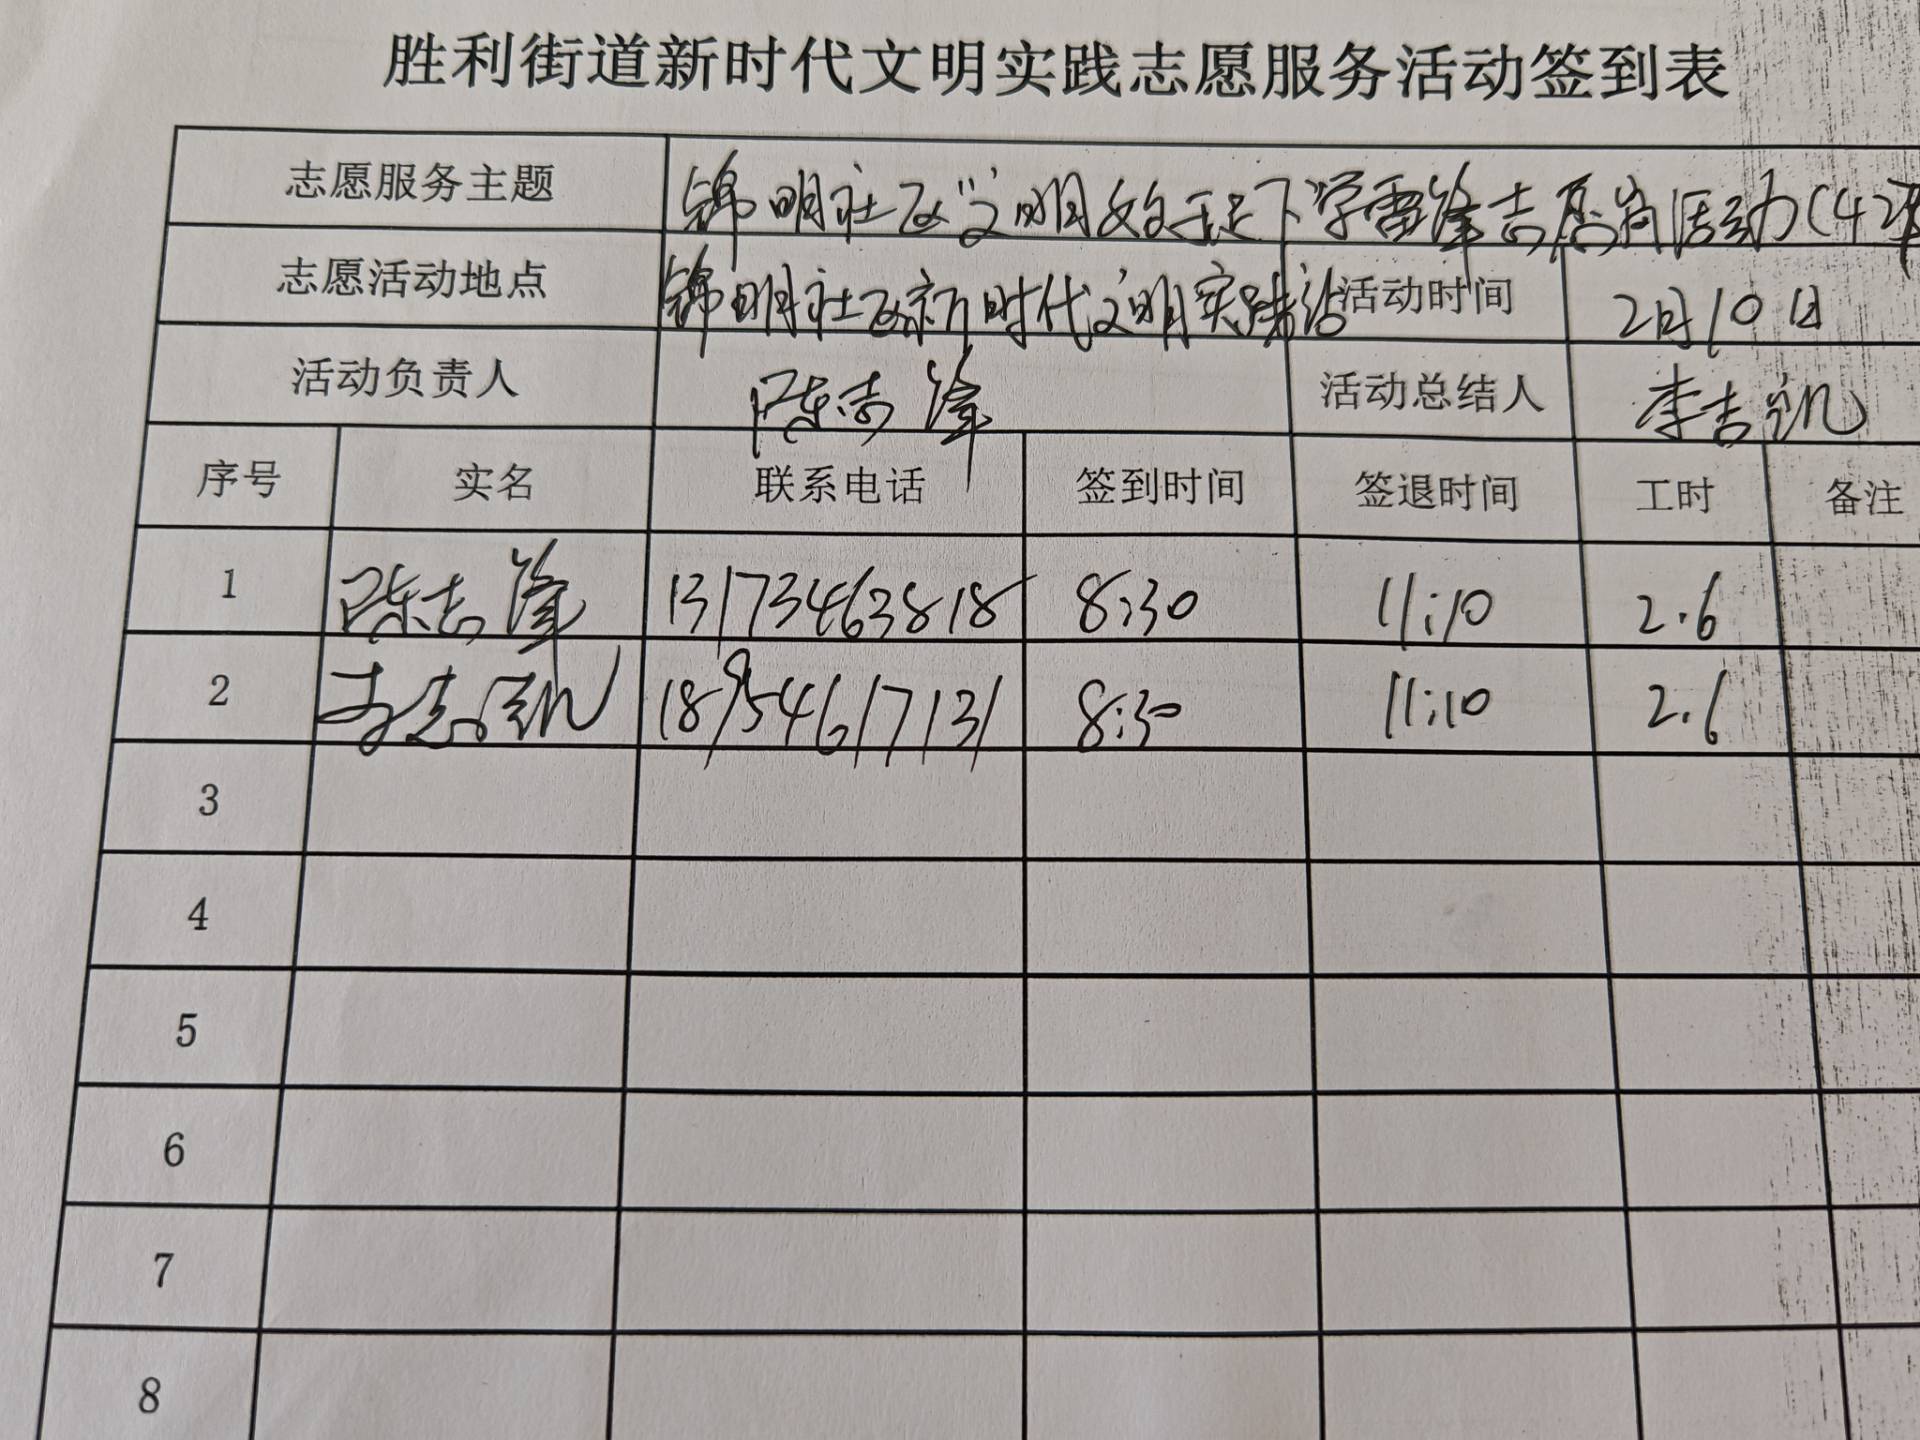 胜利街道新时代文明实践志愿服务活动签到表
志愿服务主题 锦明社区"文明 始于足下"学雷锋志愿 活动(42
志愿活动地点 锦明社区新时代文明实践站 活动时间 2月10日
活动负责人 陈志峰 活动总结人 李志凯
序号 实名 联系电话 签到时间 签退时间 工时 备注
1 陈志峰 13173463818 8:30 11:10 2.6
2 李志凯 18954617131 8:30 11:10 2.6
3
4
5
6
7
8